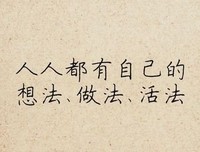 人人都有自己的
想法、做法、活法